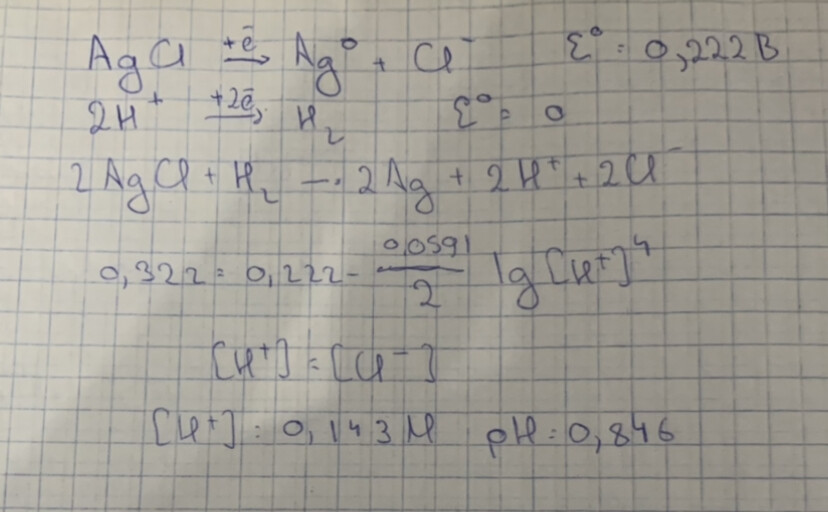 AgCl +ē→ Ag⁰ + Cl⁻ ℰ⁰ = 0,222 В
2H⁺ +2ē→ H₂ ℰ⁰ = 0
2AgCl + H₂ → 2Ag + 2H⁺ + 2Cl⁻
0,322 = 0,222 - 0,0591/2 lg [H⁺]⁴
[H⁺] = [Cl⁻]
[H⁺] = 0,143 М pH = 0,846